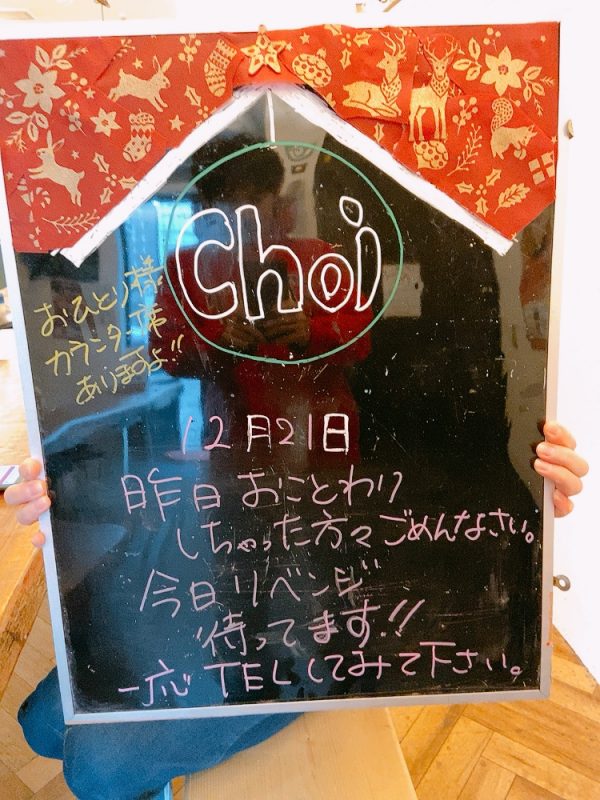 Choi
おひとり様
カウンター席
ありますよ!!
12月21日
昨日おことわり
しちゃった方々ごめんなさい。
今日リベンジ
待ってます!!
一応TELしてみて下さい。